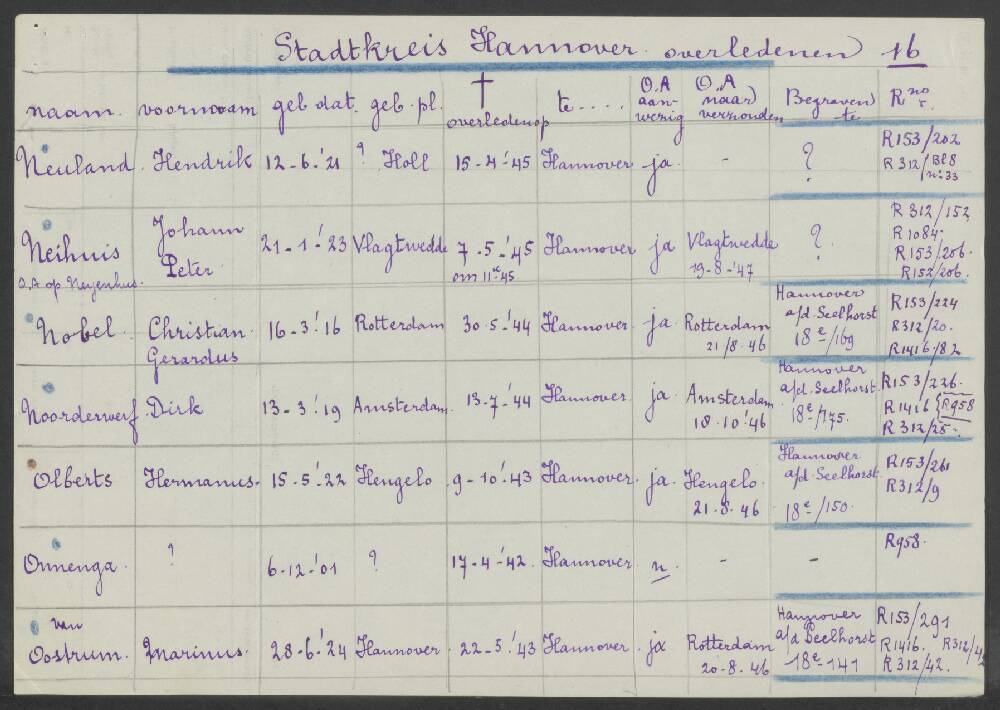 Stadtkreis Hannover. overledenen 16
naam. voornaam geb dat. geb. pl. † overleden op te.... O.A aanwezig O.A naar verzonden Begraven te R no r.
Neuland. Hendrik 12-6-'21 ? Holl 15-4-'45 Hannover ja. - ? R153/202
R312/Bl8
no 33
Neihuis Johann Peter 21-1-'23 Vlagtwedde 7-5-'45 Hannover ja Vlagtwedde ? R312/152
O.A op Neyenhuis. om 11 45 19-8-'47 R1084.
R153/206.
R152/206.
Nobel. Christian Gerardus 16-3-'16 Rotterdam 30-5-'44 Hannover ja Rotterdam Hannover R153/224
21/8.46 a/d. Seelhorst R312/20.
18e/169 R1416/82
Noorderwerf Dirk 13-3-'19 Amsterdam 13-7-'44 Hannover ja. Amsterdam Hannover R153/226.
18.10.'46 a/d. Seelhorst. R1416 {R958
18e/175. R312/25.
Olberts Hermanus. 15-5-'22 Hengelo 9-10-'43 Hannover. ja. Hengelo. Hannover R153/261
21.8.46 a/d. Seelhorst. R312/9
18e/150.
Onnenga. ? 6-12-'01 ? 17-4-'42. Hannover. n. - - R958.
van Oostrum. Marinus. 28-6-'24 Hannover. 22-5-'43 Hannover ja Rotterdam Hannover R153/291
20-8.46 a/d Seelhorst R1416. R312/42
18e-141 R312/42.